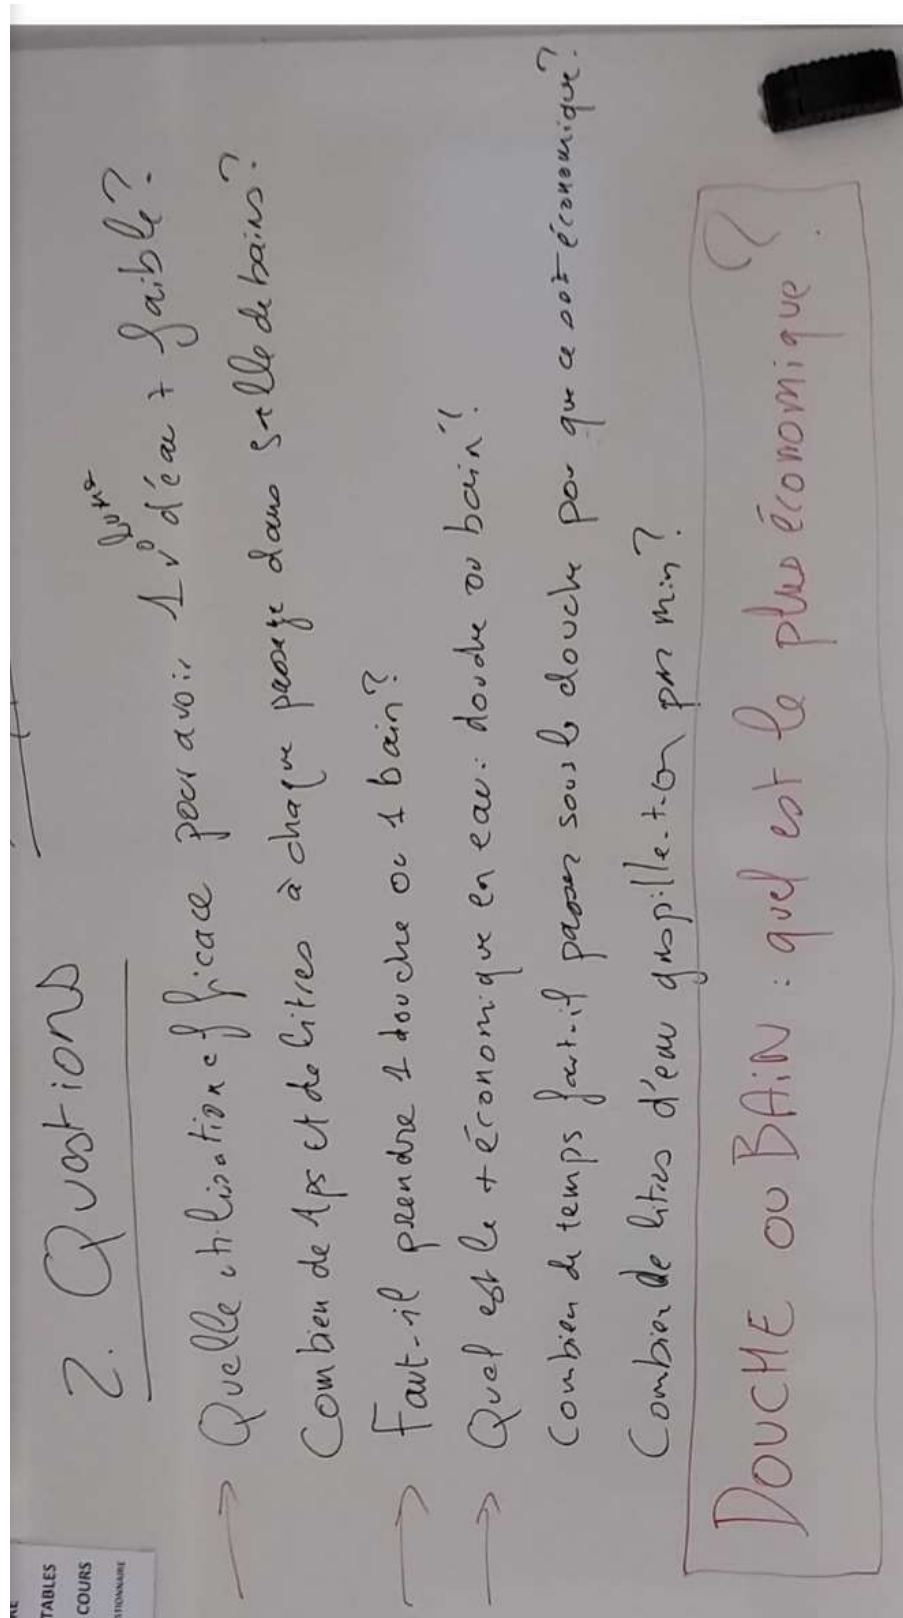 2. Questions
→ Quelle utilisation efficace pour avoir 1 v° d'eau + faible?
Combien de tps et de litres à chaque passage dans salle de bains?
→ Faut-il prendre 1 douche ou 1 bain?
→ Quel est le + économique en eau: douche ou bain?
Combien de temps faut-il passer sous la douche pour que ce soit économique?
Combien de litres d'eau gaspille-t-on par min?
DOUCHE OU BAIN : quel est le plus économique ?
TABLES
COURS